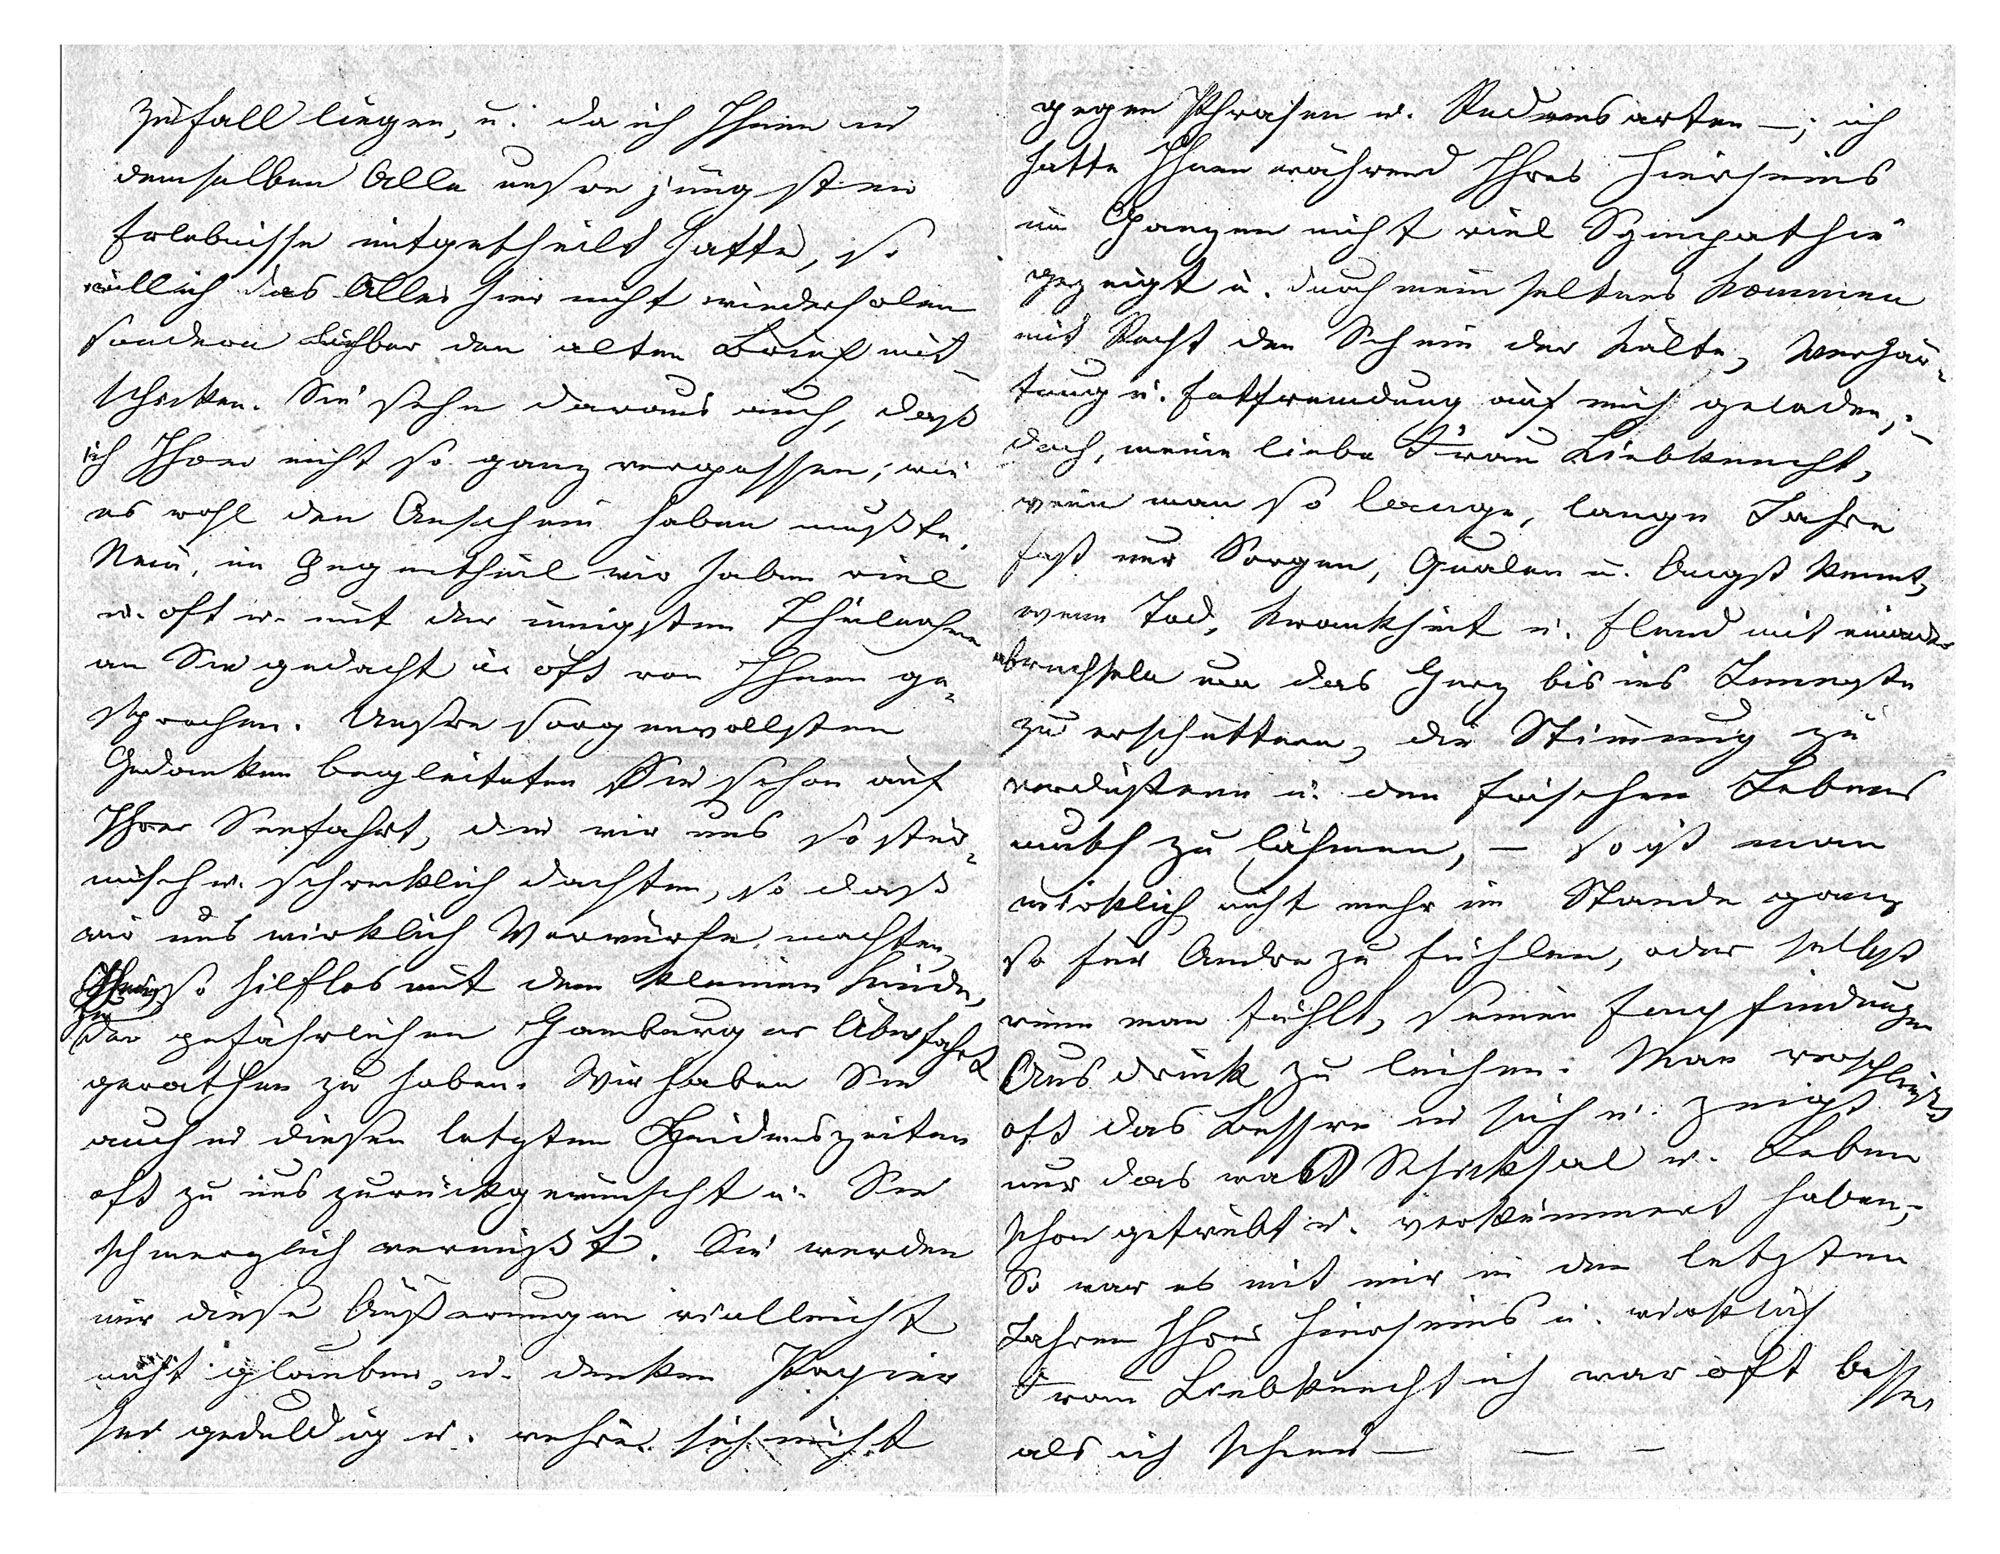 Zufall liegen, u. da ich Ihnen in
demselben Alle unsre jüngsten
Erlebnisse mitgetheilt hatte, so
will ich das Alles hier nicht wiederholen
sondern lieber den alten Brief mit-
schicken. Sie sehn daraus auch, daß
ich Ihrer nicht so ganz vergessen, wie
es wohl den Anschein haben mußte.
Nein, im Gegentheil wir haben viel
u. oft u. mit der innigsten Theilnahme
an Sie gedacht u. oft von Ihnen ge-
sprochen. Unsre sorgenvollsten
Gedanken begleiteten Sie schon auf
Ihrer Seefahrt, die wir uns so stür-
misch u. schrecklich dachten, so daß
wir uns wirklich Vorwürfe machten,
Ihnen so hilflos mit dem kleinen Kinde,
zu
der gefährlichen Hamburger Überfahrt
gerathen zu haben. Wir haben Sie
auch in diesen letzten Leidenszeiten
oft zu uns zurückgewünscht u. Sie
schmerzlich vermißt. Sie werden
mir diese Äußerungen vielleicht
nicht glauben, u. denken Papier
sei geduldig u. wehre sich nicht
gegen Phrasen u. Redensarten —; ich
hatte Ihnen während Ihres Hierseins
im Ganzen nicht viel Sympathie
gezeigt u. durch mein seltnes Kommen
mit Recht den Schein der Kälte, Verhär-
tung u. Entfremdung auf mich geladen; —
doch, meine liebe Frau Liebknecht,
wenn man so lange, lange Jahre
fast nur Sorgen, Qualen u. Angst kennt,
wenn Tod, Krankheit u. Elend mit einander
abwechseln um das Herz bis ins Innerste
zu erschüttern, die Stimmung zu
verdüstern u. den frischen Lebens
muth zu lähmen, — so ist man
wirklich nicht mehr im Stande ganz
so für Andre zu fühlen, oder selbst
wenn man fühlt, seinen Empfindungen
Ausdruck zu leihen. Man verschließt
oft das Bessre in sich u. zeigt
nur das was Schicksal u. Leben
schon getrübt u. verkümmert haben,—
So war es mit mir in den letzten
Jahren Ihres Hierseins u. wirklich
Frau Liebknecht ich war oft besser
als ich schien — — —